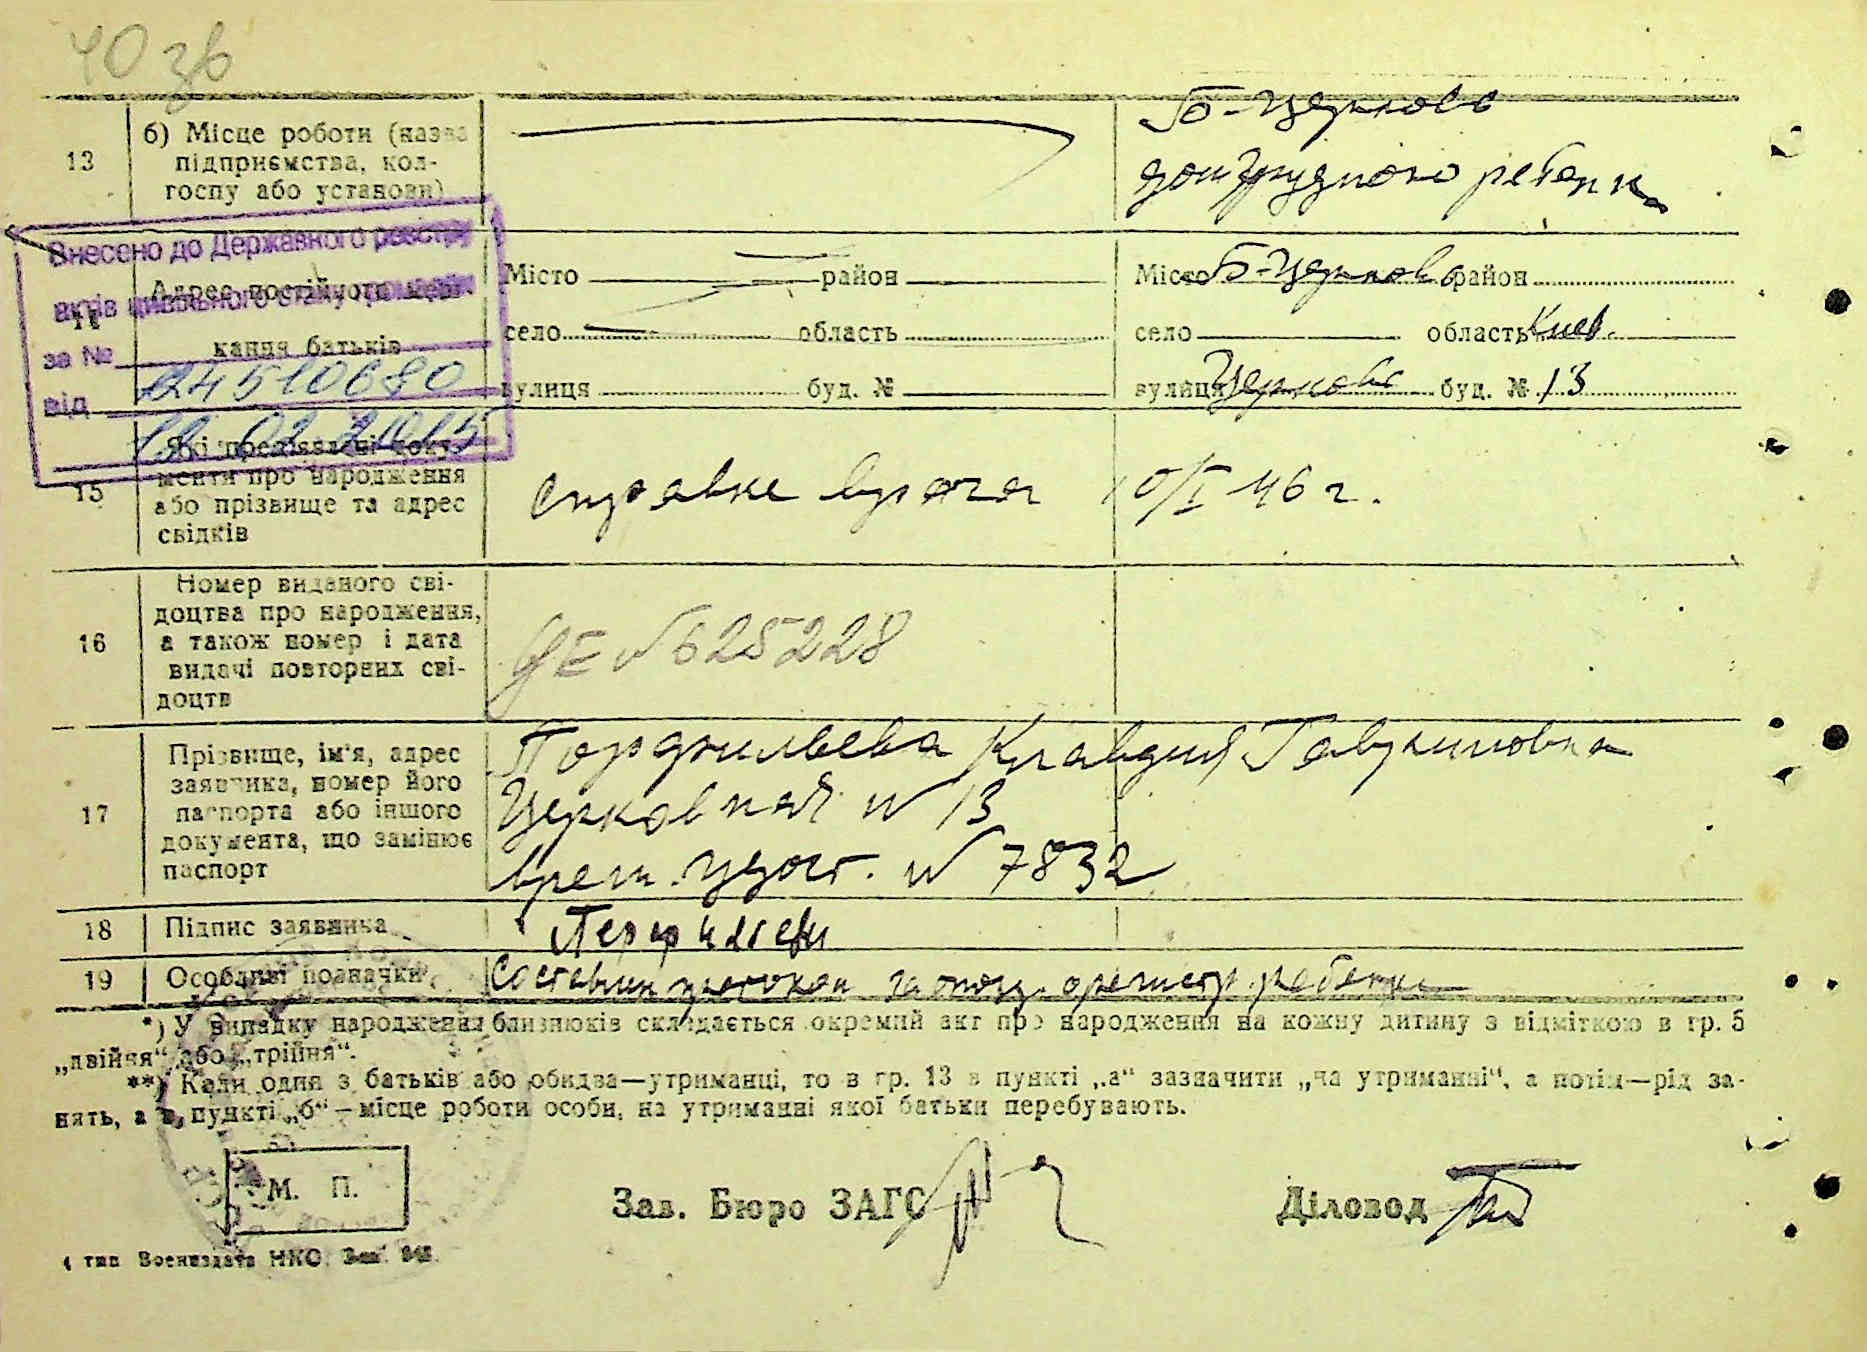 40 зв
13
б) Місце роботи (назва
підприємства, кол-
госпу або установи)
Б-Церковь
дом грудного ребенка
Внесено до Державного реєстру
актів цивільного стану громадян
за № 24510680
від 12 02 2015
Адрес постійного меш-
кання батьків
Місто район
село область
вулиця буд. №
Місто Б-Церковь район
село область Киев.
вулиця Церковн буд. № 13
15
Які пред'явлені доку-
менти про народження
або прізвище та адрес
свідків
справка врача 10/I 46 г.
16
Номер виданого сві-
доцтва про народження,
а також номер і дата
видачі повторних сві-
доцтв
№ 625228
17
Прізвище, ім'я, адрес
заявника, номер його
паспорта або іншого
документа, що замінює
паспорт
Клавдия Гавриловна
Церковная № 13
врем. удост. № 7832
18
Підпис заявника
19
Особливі позначки
ребенка
*) У випадку народження близнюків складається окремий акт про народження на кожну дитину з відміткою в гр. 5
„двійня“ або „трійня“.
**) Коли один з батьків або обидва—утриманці, то в гр. 13 в пункті „а“ зазначити „на утриманні“, а потім—рід за-
нять, а в пункті „б“ — місце роботи особи, на утриманні якої батьки перебувають.
М. П.
Зав. Бюро ЗАГС
Діловод
тип Воениздата НКО. Зак.